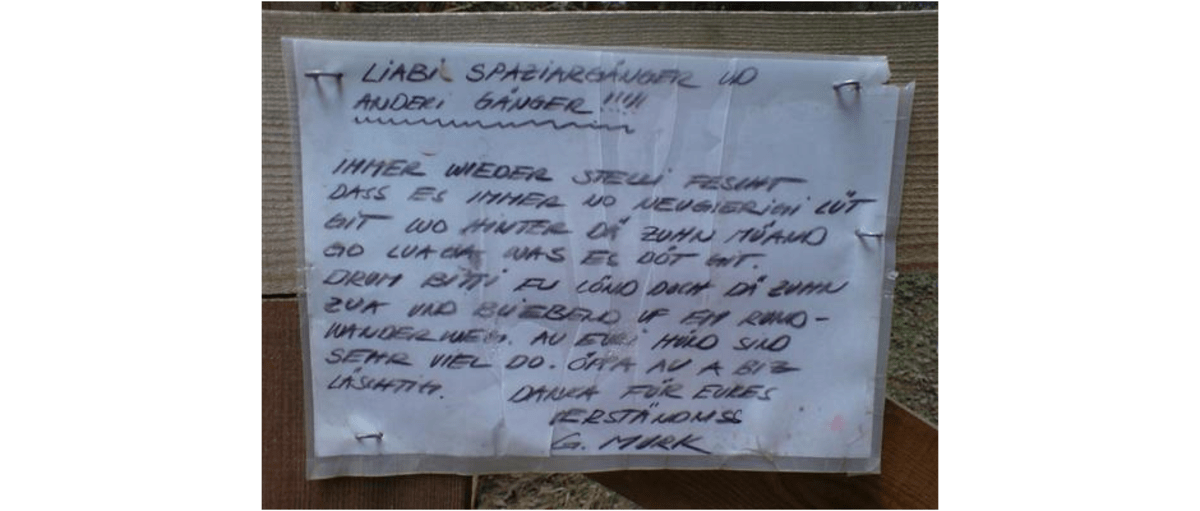 LIABI SPAZIARGÄNGER UD
ANDERI GÄNGER !!!!!
IMMER WIEDER STELLI FESCHT
DASS ES IMMER NO NEUGIERIGI LÜT
GIT WO HINTER DÄ ZUHN MÜAND
GO LUAGA WAS ES DÖT GIT.
DRUM BITTI EU LÖND DOCH DÄ ZUHN
ZUA UND BLIEBEND UF EM RUND-
WANDERWEG. AU EURI HÜND SIND
SEHR VIEL DO. ÖPPA AU A BIZ
LÄSCHTIG. DANKA FÜR EURES
VERSTÄNDNISS
G. MURK